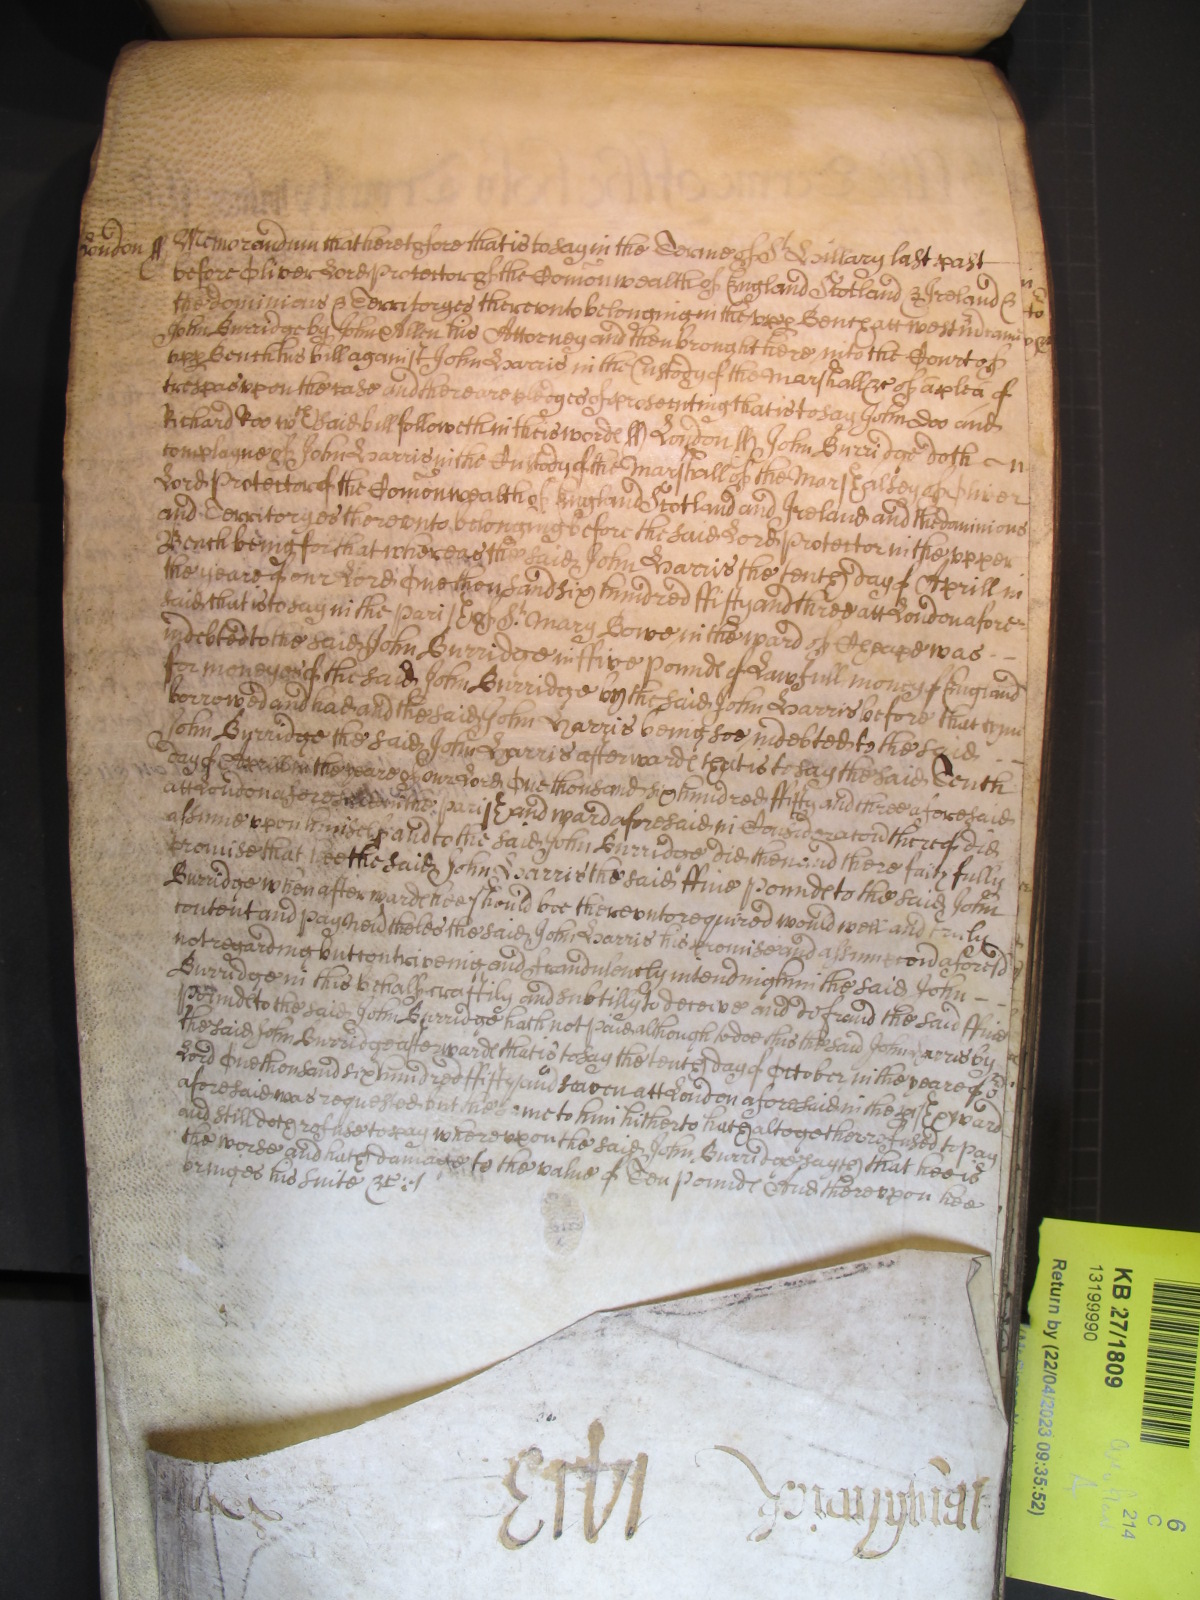 London ss Memorandum that heretofore that is to say in the Terme of St Hillary last past
before Oliver Lord Protector of the Comonwealth of England Scotland & Ireland &
the dominions & Territoryes thereunto belonging in the upp Bench att Westm came
John Burridge by John Allen his Attorney and then brought here into the Court of
upp Bench his bill against John Harris in the Custody of the Marshall &c of a plea of
trespas upon the case and there are pledges of prosecuting that is to say John Doo and
Richard Roo wch said bill followeth in theis words ss London ss John Burridge doth
complayne of John Harris in the Custody of the Marshall of the Marshalsey of Oliver
Lord Protector of the Comonwealth of England Scotland and Ireland and the dominions
and Territoryes thereunto belonging before the said Lord Protector in the upper
Bench being for that whereas the said John Harris the tenth day of Aprill in
the yeare of our Lord One thousand six hundred fifty and three att London afore
said that is to say in the parish of St Mary Bowe in the ward of Cheape was
indebted to the said John Burridge in ffive pounds of Lawfull money of England
for moneyes of the said John Burridge by the said John Harris before that tyme
borrowed and had and the said John Harris being soe indebted to the said
John Burridge the said John Harris afterwards that is to say the said Tenth
day of Aprill in the yeare of our Lord One thousand six hundred ffifty and three aforesaid
att London aforesaid in the parish and ward aforesaid in Consideracon thereof did
assume upon himself and to the said John Burridge did then and there faithfully
promise that hee the said John Harris the said ffive pounds to the said John
Burridge when afterwards hee should bee thereunto required would well and truly
content and pay Neverthelesse the said John Harris his promise and assumccon aforesd
not regarding but contriveing and fraudulently intending him the said John
Burridge in this behalf craftily and subtilly to deceive and defraud the said ffive
pounds to the said John Burridge hath not paid although to doe this the said John Harris by
the said John Burridge afterwards that is to say the tenth day of October in the yeare of or
Lord One thousand six hundred ffifty and seaven att London aforesaid in the psh & ward
aforesaid was requested but the same to him hitherto hath altogether refused to pay
and still doth refuse to pay whereupon the said John Burridge sayth that hee is
the worse and hath damage to the value of Ten pounds And thereupon hee
bringes his suite &c
1413
KB 27/1809
13199990
Return by (22/04/2023 09:35:52)
6
C
214